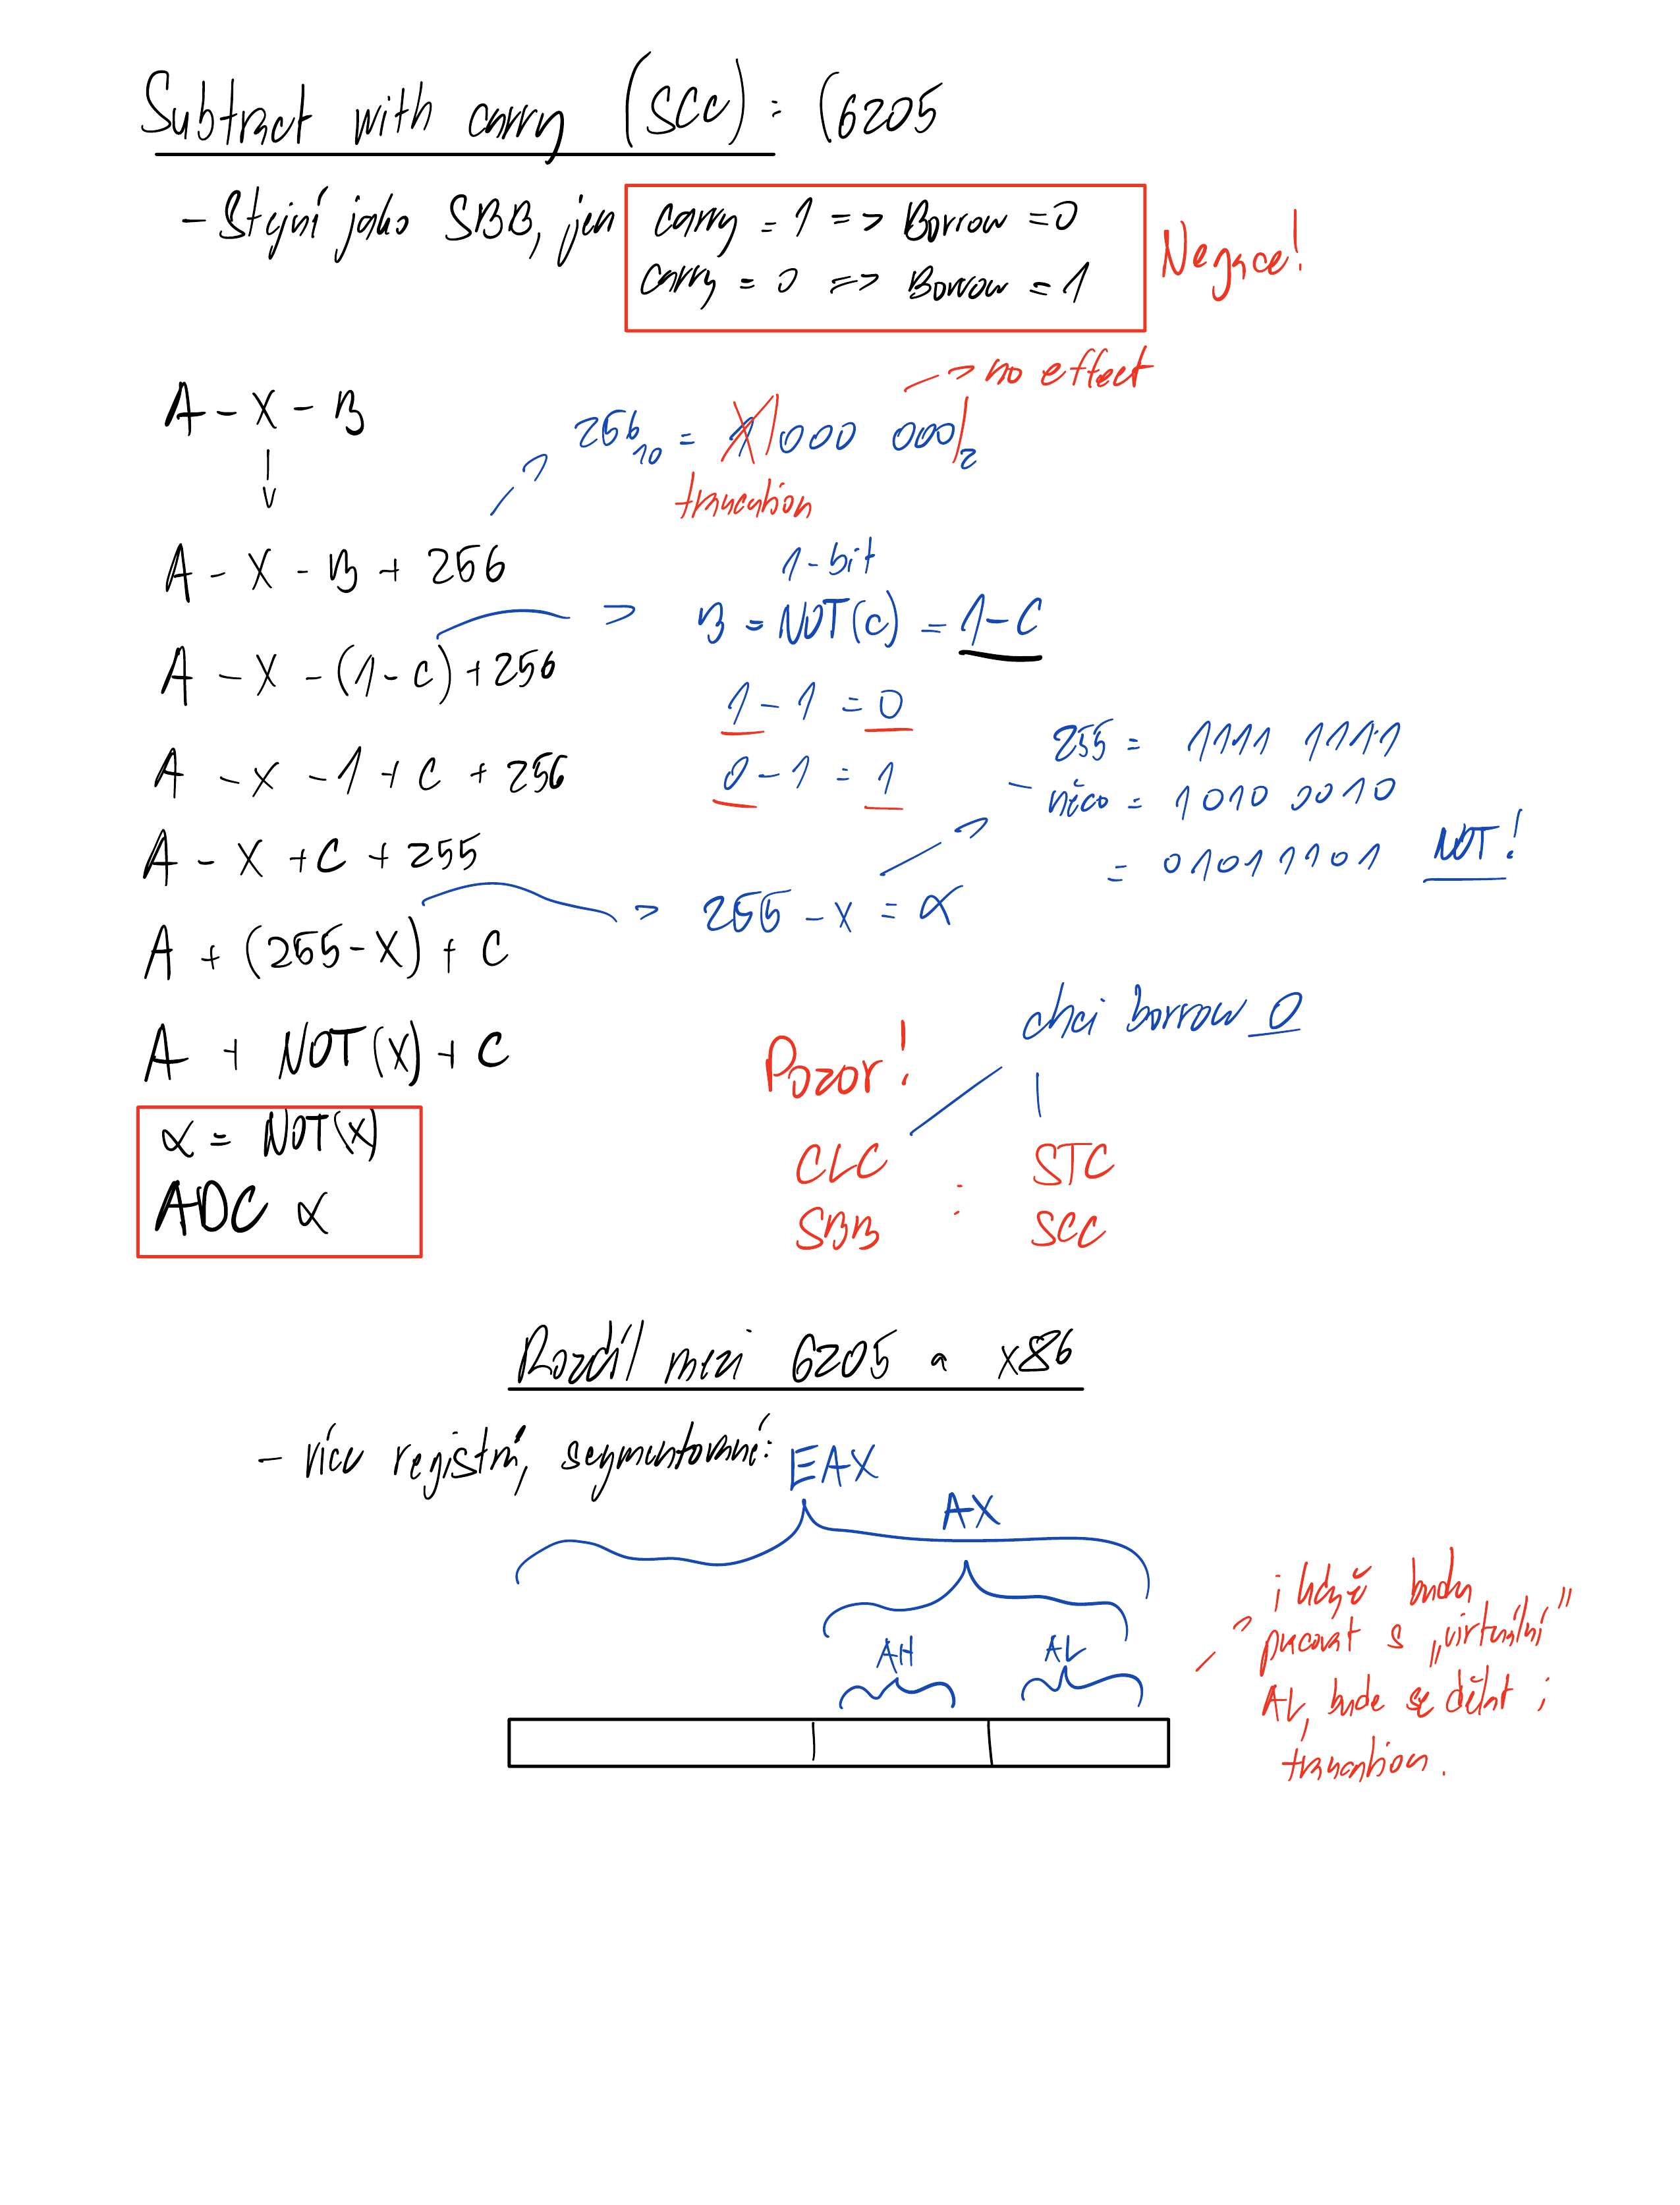 Subtract with carry (SCC) : (6205
- Stejní jako SBB, jen
carry = 1 => Borrow = 0
carry = 0 => Borrow = 1
Negace!
A - X - B
-> no effect
256₁₀ = 1|000 000|₂
truncation
A - X - B + 256
1-bit
B = NOT(c) = 1-C
A - X - (1-c) + 256
1 - 1 = 0
0 - 1 = 1
A - x - 1 + c + 256
255 = 1111 1111
- něco = 1010 0010
= 01011101 NOT!
A - X + C + 255
255 - x = α
A + (255-X) + C
A + NOT(X) + C
α = NOT(x)
ADC α
Pozor!
chci borrow 0
CLC : STC
SBB SCC
Rozdíl mezi 6205 a x86
- více registrů, segmentované:
EAX
AX
AH AL
i když budu
pracovat s „virtuální"
AL, bude se dělat i
truncation.